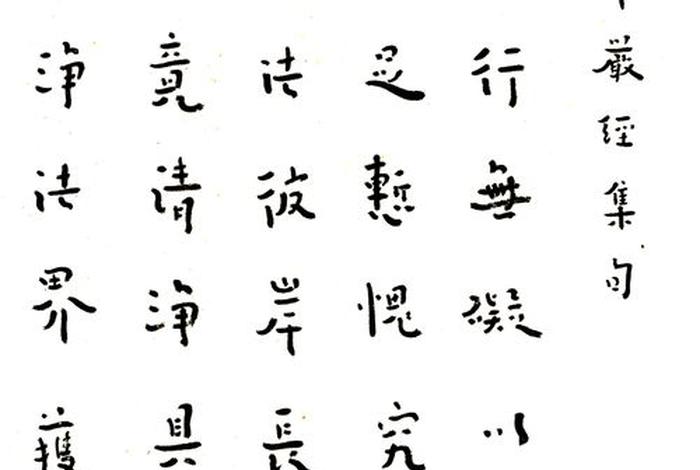 嚴經集句
行無礙以
足慙愧究
法彼岸長
竟清淨具
淨法界獲